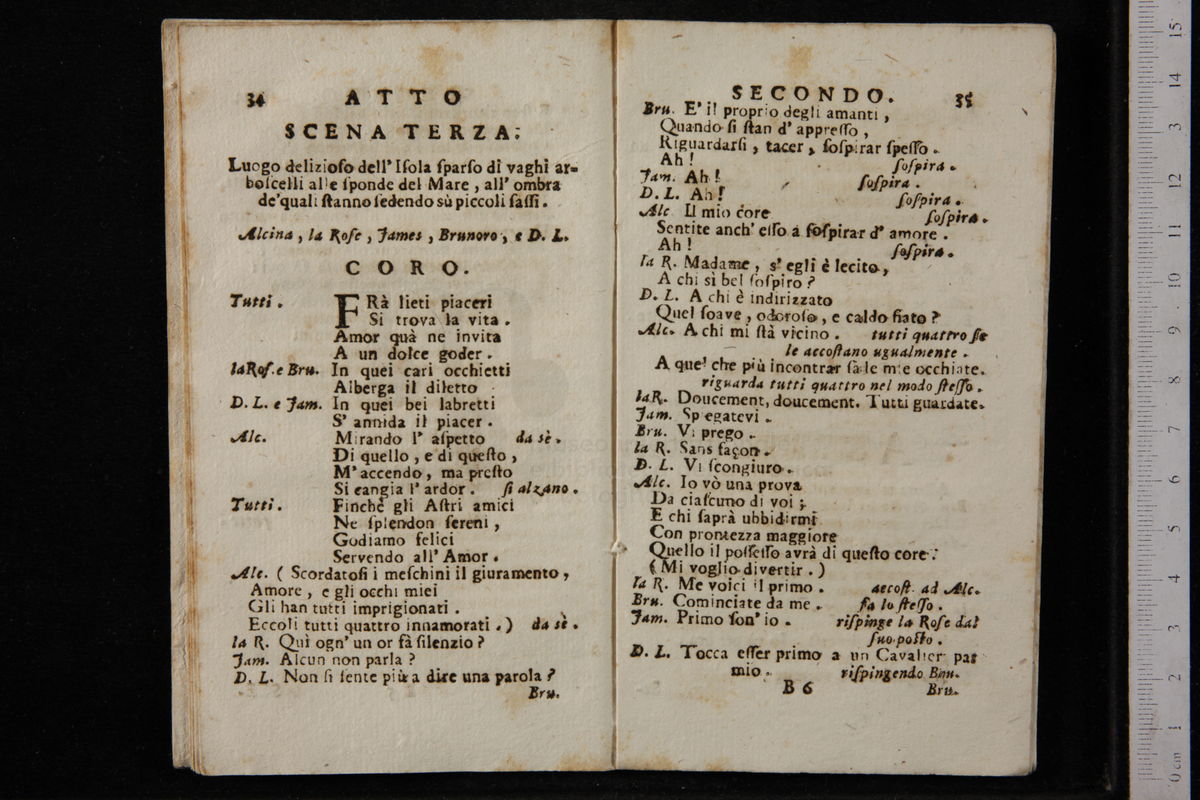 34 ATTO
SCENA TERZA.
Luogo delizioſo dell' Iſola ſparſo di vaghi ar-
boſcelli alle ſponde del Mare, all' ombra
de'quali ſtanno ſedendo sù piccoli ſaſſi.
Alcina, la Roſe, James, Brunoro, e D. L.
CORO.
Tutti. FRà lieti piaceri
Si trova la vita.
Amor quà ne invita
A un dolce goder.
la Roſ. e Bru. In quei cari occhietti
Alberga il diletto
D. L. e Jam. In quei bei labretti
S' annida il piacer.
Alc. Mirando l' aſpetto da sè.
Di quello, e di queſto,
M' accendo, ma preſto
Si cangia l' ardor. ſi alzano.
Tutti. Finchè gli Aſtri amici
Ne ſplendon ſereni,
Godiamo felici
Servendo all' Amor.
Alc. (Scordatoſi i meſchini il giuramento,
Amore, e gli occhi miei
Gli han tutti imprigionati.
Eccoli tutti quattro innamorati.) da sè.
la R. Quì ogn' un or fà ſilenzio?
Jam. Alcun non parla?
D. L. Non ſi ſente più a dire una parola?
Bru.
SECONDO. 35
Bru. E' il proprio degli amanti,
Quando ſi ſtan d' appreſſo,
Riguardarſi, tacer, ſoſpirar ſpeſſo.
Ah! ſoſpira.
Jam. Ah! ſoſpira.
D. L. Ah! ſoſpira.
Alc Il mio core ſoſpira.
Sentite anch' eſſo a ſoſpirar d' amore.
Ah! ſoſpira.
la R. Madame, s' egli è lecito,
A chi sì bel ſoſpiro?
D. L. A chi è indirizzato
Quel ſoave, odoroſo, e caldo fiato?
Alc. A chi mi ſtà vicino. tutti quattro ſe
le accoſtano ugualmente.
A quel che più incontrar ſà le mie occhiate.
riguarda tutti quattro nel modo ſteſſo.
la R. Doucement, doucement. Tutti guardate.
Jam. Spiegatevi.
Bru. Vi prego.
la R. Sans façon.
D. L. Vi ſcongiuro.
Alc. Io vò una prova
Da ciaſcuno di voi;
E chi ſaprà ubbidirmi
Con prontezza maggiore
Quello il poſſeſſo avrà di queſto core.
(Mi voglio divertir.)
la R. Me voici il primo. accoſt. ad Alc.
Bru. Cominciate da me. fa lo ſteſſo.
Jam. Primo ſon' io. riſpinge la Roſe dal
ſuo poſto.
D. L. Tocca eſſer primo a un Cavalier par
mio. riſpingendo Bru.
B 6 Bru.
15
14
13
12
11
10
9
8
7
6
5
4
3
2
1
0 cm